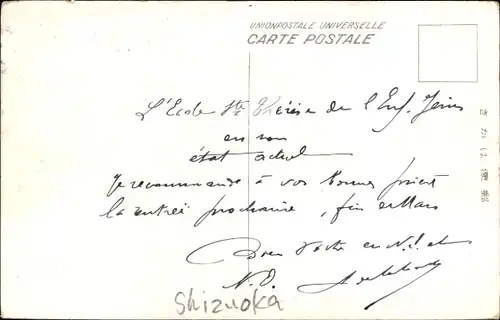 UNION POSTALE UNIVERSELLE
CARTE POSTALE
きかは便郵
L'Ecole Ste Thérèse de l'Enf. Jésus
en son
état actuel
Je recommande à vos bonnes prières
la rentrée prochaine, fin de Mars
Bien Vôtre en N.S. et
N.D.
Shizuoka